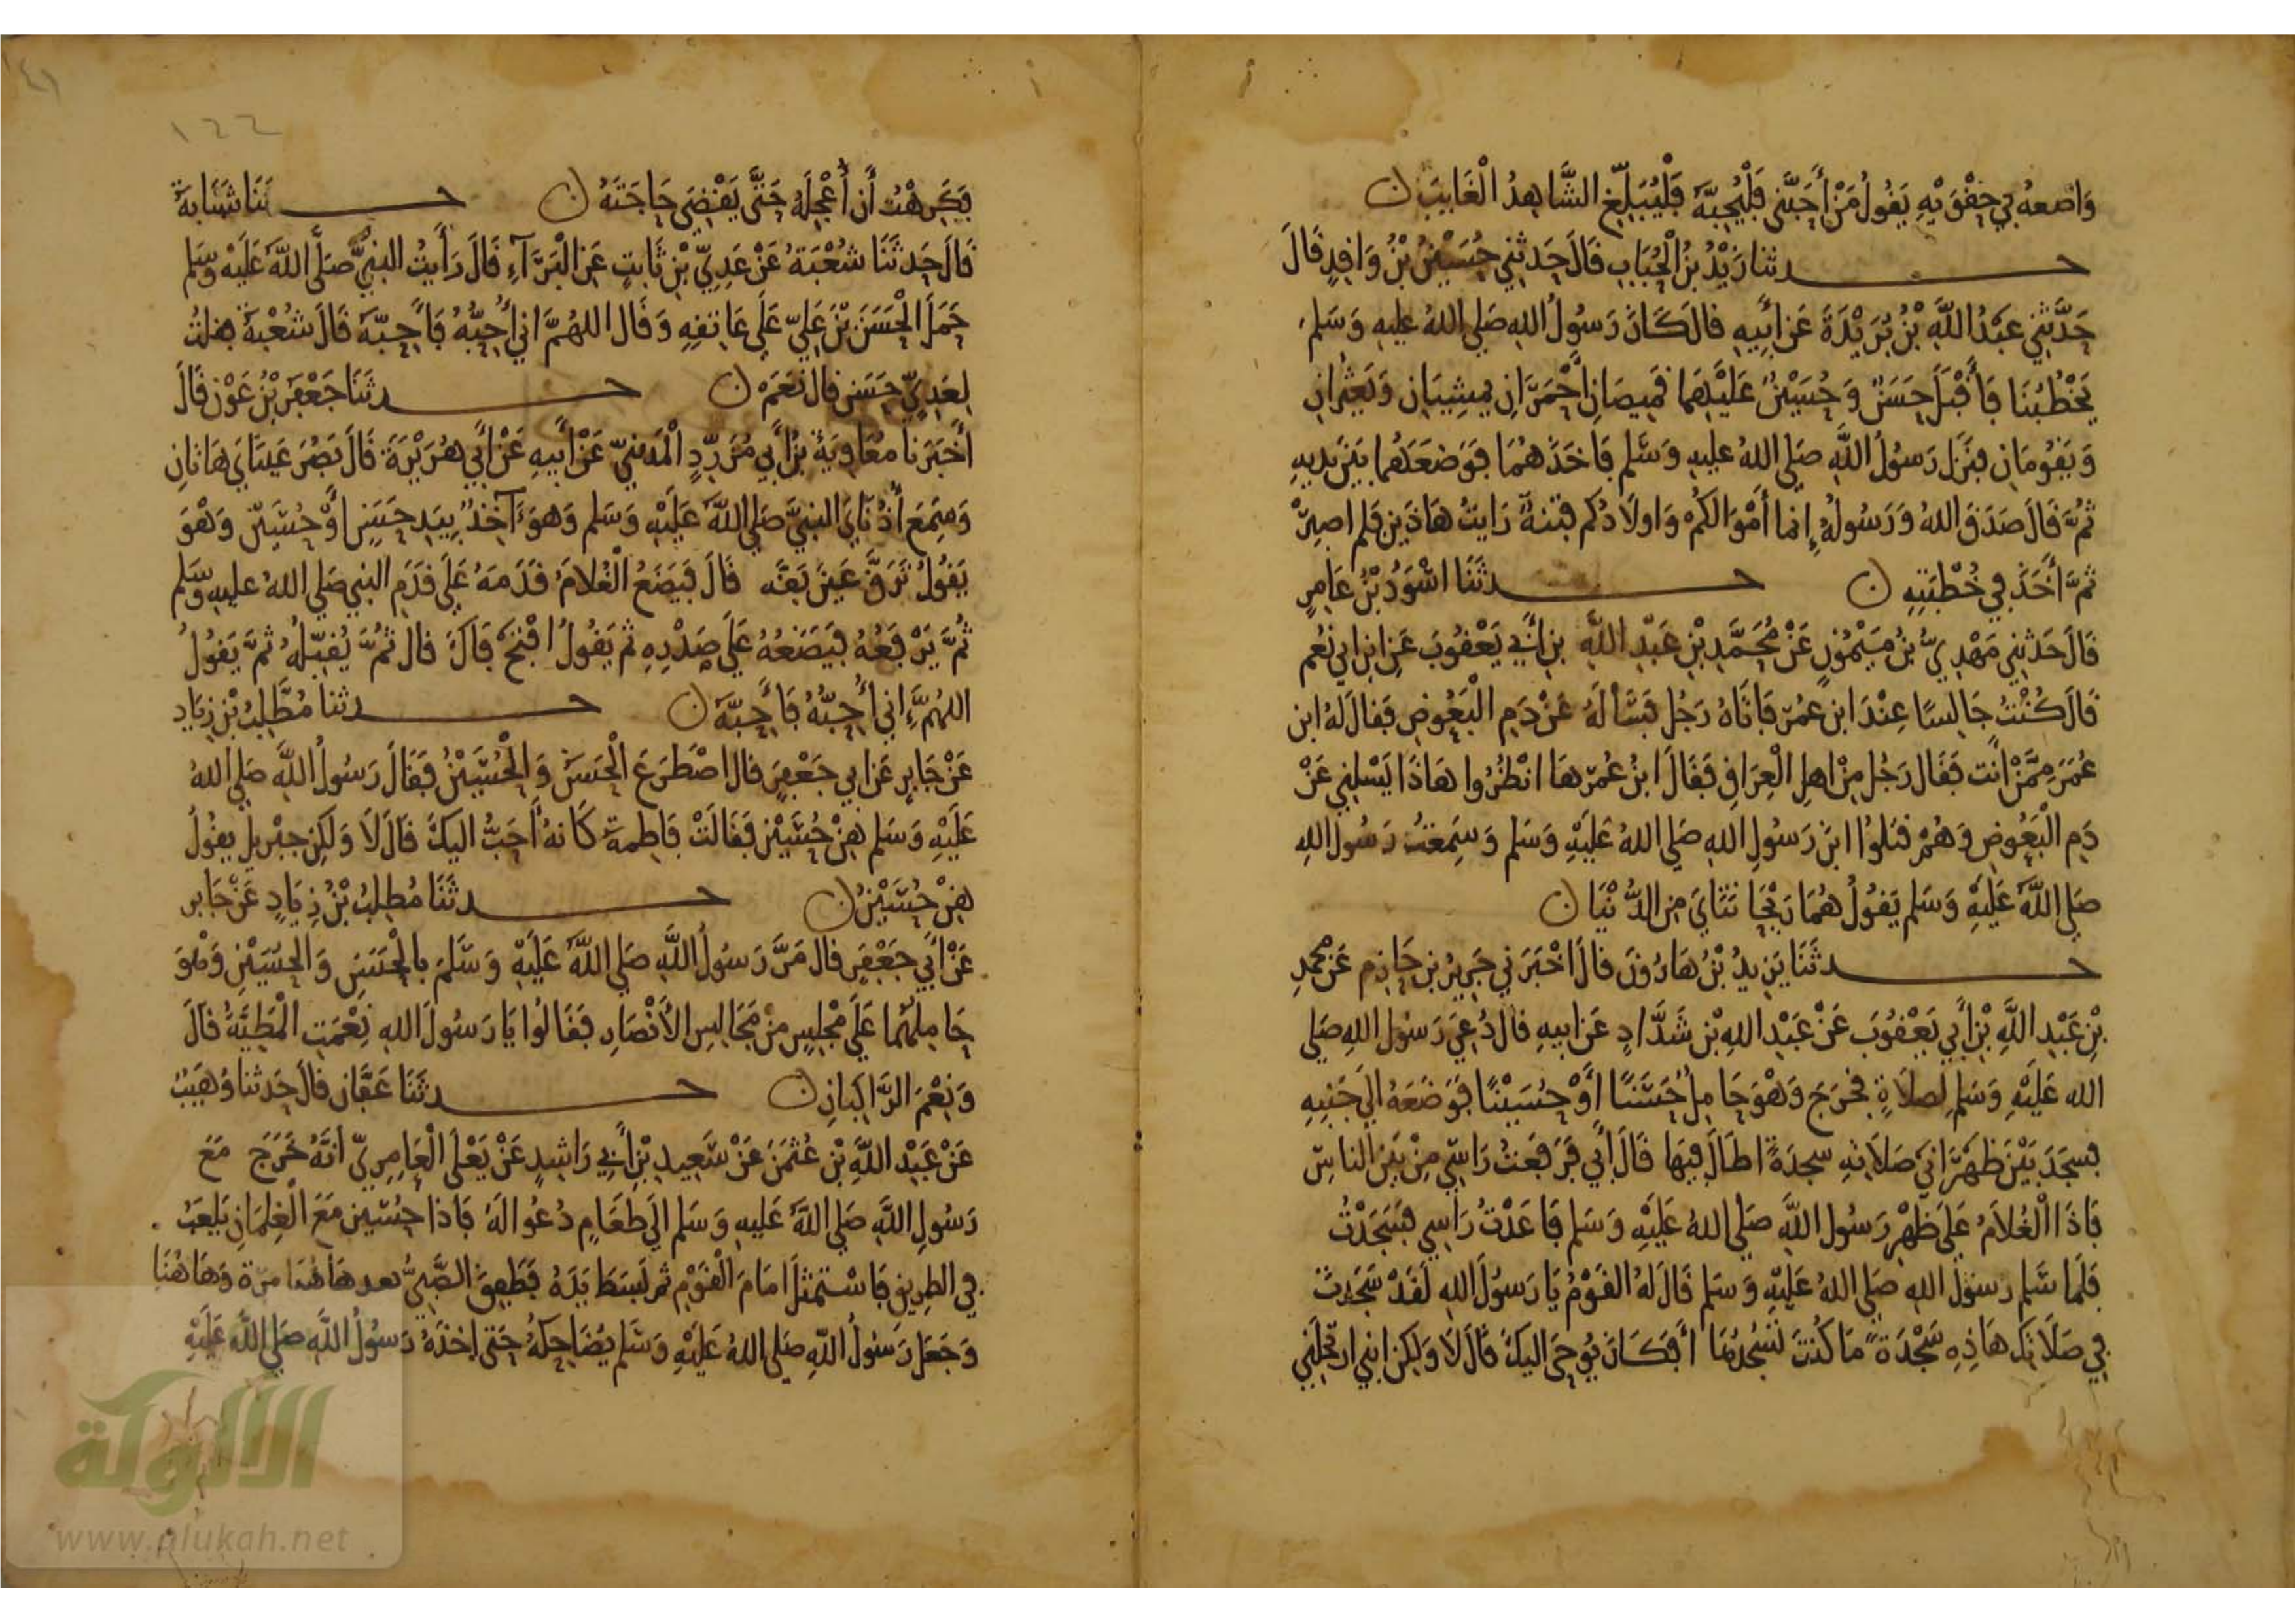 وَاضعهُ في حقْوَيْهِ يَقُولُ مَنْ أَحَبَّنِي فَلْيُحِبَّهُ فَلْيُبَلِّغِ الشَّاهِدُ الْغَايِبَ ن
حـدثنا زَيْدُ بْنُ الْحُبَابِ قَالَ حَدثنِي حُسَيْنُ بْنُ وَاقِدٍ قَالَ
حَدَّثَنِي عَبْدُ اللَّهِ بْنُ بُرَيْدَةَ عَن أَبِيهِ قال كَانَ رَسُولُ الله صَلى اللهُ عليهِ وَسَلم
يَخْطُبُنَا فَأَقْبَلَ حَسَنٌ وَحُسَيْنٌ عَلَيْهِمَا قَمِيصَانِ أَحْمَرَانِ يمشِيَانِ وَيَعثُرانِ
وَيَقُومَانِ فنَزَل رَسُولُ اللَّهِ صَلى اللهُ عليهِ وَسَلم فَاخَذَهُمَا فَوَضَعَهُما بَيْنَ يديهِ
ثُمَّ قَالَ صَدَقَ اللهُ وَرَسُولُهُ إِنما أَمْوَالكُمْ وَاولَادُكم فتنةٌ رَايتُ هَاذَيْنِ فلم اصبِرْ
ثمَّ أَخَذَ فِي خُطْبَتِهِ ن حـدثَنَا اسْوَدُ بْنُ عَامِرٍ
قَالَ حَدثنِي مَهْدِيُّ بْنُ مَيْمُونٍ عَنْ مُحَمَّدِ بْنِ عَبْدِ اللَّهِ بنِ أَبِي يَعْقُوبَ عَنِ ابنِ ابي نُعم
قَالَ كُنْتُ جَالِسًا عِنْدَ ابن عمُرَ فَاتَاهُ رَجُل فَسَأَلَهُ عَنْ دَمِ الْبَعُوضِ فَقالَ لهُ ابن
عُمَرَ مِمَّنْ انتَ فَقَال رَجُل مِنْ اهلِ الْعِرَاقِ فَقَالَ ابنُ عُمرَ هَا انْظُرُوا هَاذَا يَسْلنِي عَنْ
دَمِ الْبَعُوضِ وَهُمْ قتلُوا ابنَ رَسُولِ اللهِ صَلى اللهُ عَلَيْهِ وَسَلم وَسَمِعْتُ رَسُولَ اللهِ
صَلى اللَّهُ عَلَيْهِ وَسَلم يَقُولُ هُمَا رَيْحَانَتَايَ مِن الدُّنْيَا ن
حـدثَنَا يَزِيدُ بْنُ هَارُونَ قالَ اخْبَرَنِي جَرِيرُ بن حَازِمٍ عَنْ محمدِ
بْنِ عَبْدِ اللَّهِ بْنِ أَبِي يَعْقُوبَ عَنْ عَبْدِ اللهِ بْنِ شَدَّادٍ عَن ابيهِ قال دُعِيَ رَسُول اللهِ صَلى
الله عَلَيْهِ وَسَلم لِصلَاةٍ فخرَجَ وَهْوَ حَامِلٌ حَسَنًا أَوْ حُسَيْنًا فَوَضَعَهُ الَى جَنْبِهِ
فسَجَدَ بَيْنَ ظَهْرَانَيْ صَلَاتهِ سجدَةً اطَالَ فِيهَا قَالَ أَبِي فَرَفَعْتُ رَاسِي مِنْ بَيْنِ الناسِ
فَاذَا الْغُلَامُ عَلَى ظَهْرِ رَسُول اللَّهِ صَلى اللهُ عَلَيْهِ وَسَلم فَاعَدْتُ رَاسِي فَسَجَدْتُ
فَلَما سَلم رسولُ اللهِ صَلى اللهُ عَلَيْهِ وَسَلم قَالَ لهُ القَوْمُ يَا رَسُولَ اللهِ لَقَدْ سَجَدتَ
فِي صَلَاتِكَ هَاذِهِ سَجْدَةً مَا كُنْتَ تَسْجُدُهَا أَفَكَانَ يُوحَى اليكَ قَالَ لَا وَلكِن ابنِي ارتحَلَنِي
١٤١
١٤٢
فَكَرِهْتُ أَن أُعْجِلَهُ حَتَّى يَقْضِيَ حَاجَتَهُ ن حـثَنَا شَبَابَة
قَالَ حَدثَنَا شُعْبَةُ عَنْ عَدِيِّ بْنِ ثَابِتٍ عَنِ الْبَرَآءِ قَالَ رَأَيتُ النبيَّ صَلَّى اللَّهُ عَلَيْهِ وَسَلم
حَمَلَ الْحَسَنَ بْنَ عَلِيٍّ عَلَى عَاتقِهِ وَقَال اللهُمَّ اني أُحِبُّهُ فَأَحِبَّهُ قَالَ شُعْبَة فقلتُ
لِعَدِيٍّ حَسَن قال نَعَمْ ن حـدثَنَا جَعْفَر بْنُ عَوْن قَالَ
أَخْبَرَنا مُعَاوِيَةُ بْنُ أَبِي مُزَرِّدٍ الْمَدِينيّ عَنْ أَبِيهِ عَنْ أَبِي هُرَيْرَةَ قَالَ بَصُرَ عَيْنَايَ هَاتَانِ
وَسَمِعَ أُذُنَايَ النبيَّ صَلى اللَّهُ عَلَيْهِ وَسَلم وَهوَ آخِذٌ بِيَدِ حَسَنٍ أَوْ حُسَيْن وَهْوَ
يَقُولُ تَرَقَّ عَيْنَ بَقَّه قَالَ فَيَضَعُ الْغُلَامُ قَدَمَهُ عَلَى قَدَمِ النبي صَلى اللهُ عليهِ وَسَلم
ثُمَّ يَرْفَعُهُ فَيَضَعُهُ عَلَى صَدْرِهِ ثم يَقُولُ افْتَحْ فَاكَ قال ثُمَّ يُقَبِّلُهُ ثمَّ يَقُولُ
اللهُمَّ اني أُحِبُّهُ فَأَحِبَّهُ ن حـدثنا مُطَّلِبُ بْن زِيَاد
عَنْ جَابِرٍ عَن ابي جَعْفَرٍ قال اصْطَرَعَ الْحَسَنُ وَالْحُسَيْنُ فَقَالَ رَسُولُ اللَّهِ صَلى اللهُ
عَلَيْهِ وَسَلم هِنْ حُسَيْن فَقَالَتْ فَاطِمَةُ كَانهُ أَحَبُّ اليكَ قَالَ لَا وَلَكِن جبْرِيلُ يقُولُ
هِنْ حُسَيْنُ ن حـدثَنَا مُطلِبُ بْنُ زِيَادٍ عَنْ جَابر
عَنْ أَبِي جَعْفَرٍ قال مَرَّ رَسُولُ اللَّهِ صَلى اللَّهُ عَلَيْهِ وَسَلَّمَ بالْحَسَنِ وَالحُسَيْنِ وَهْوَ
حَامِلُهُما عَلَى مَجْلِسٍ مِنْ مَجَالِسِ الأَنْصَارِ فقَالُوا يَا رَسُولَ اللهِ نِعْمَتِ الْمَطِيَّةُ قَالَ
وَنِعْمَ الرَّاكِبَانِ ن حـدثَنَا عَفَّان قالَ حَدثنا وُهَيْبٌ
عَنْ عَبْدِ اللَّهِ بْنِ عُثْمَنَ عَنْ سَعِيدِ بْنِ أَبِي رَاشِدٍ عَنْ يَعْلَى الْعَامِرِيِّ انَّهُ خَرَجَ مَعَ
رَسُولِ اللَّهِ صَلى اللَّهُ عَلَيهِ وَسَلم الَى طَعَامٍ دُعُوا لهُ فَاذا حُسَين مَعَ الْغِلمَانِ يَلعَبُ
فِي الطرِيق فَاسْتمثَلَ امَامَ الْقَوْمِ ثم بَسَطَ يَدَهُ فَطَفِقَ الصَّبِيُّ هَاهُنا مرّة وَهَاهُنَا
وَجَعَلَ رَسُولُ اللهِ صَلى اللهُ عَلَيْهِ وَسَلم يُضَاحِكُهُ حَتى اخَذَهُ رَسُولُ اللَّهِ صَلى اللَّهُ عَلَيْهِ
الألوكة
www.alukah.net